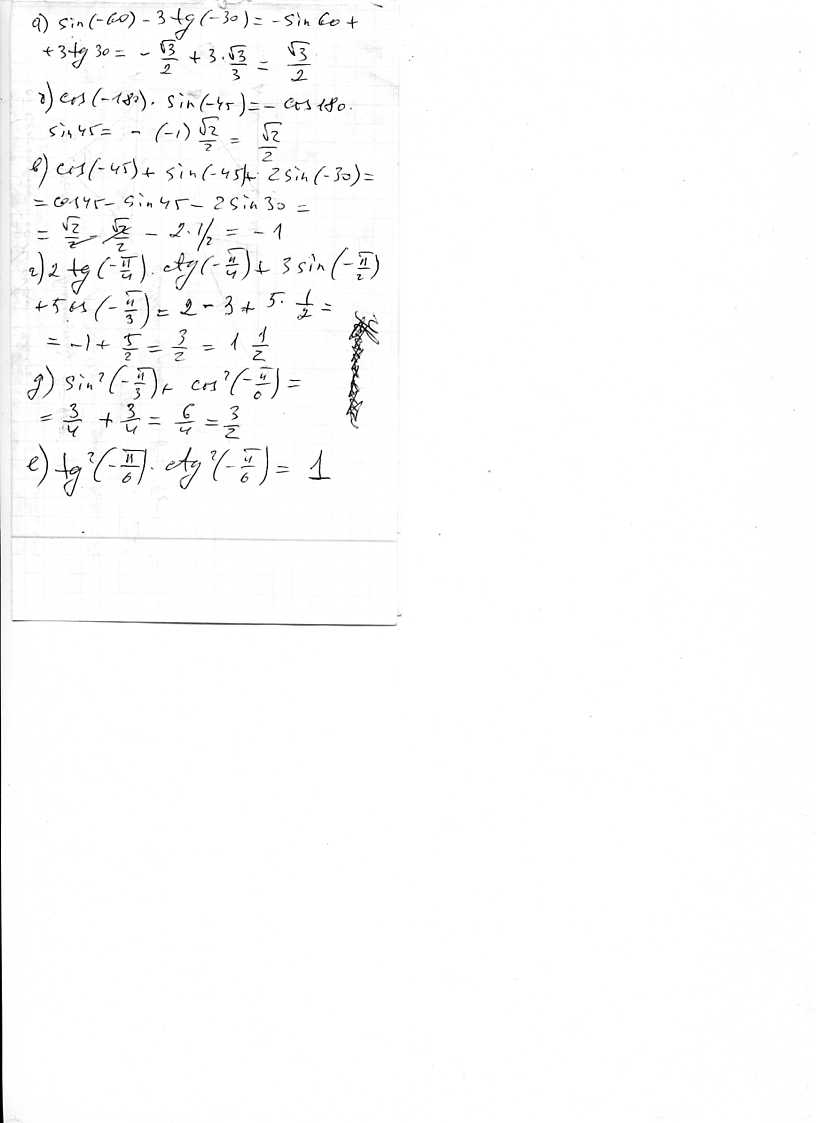 а) sin(-60) - 3tg(-30) = - sin 60 +
+ 3tg 30 = - √3/2 + 3·√3/3 = √3/2
б) cos(-180)· sin(-45) = - cos 180·
sin 45 = - (-1) √2/2 = √2/2
в) cos(-45) + sin(-45) + 2 sin(-30) =
= cos 45 - sin 45 - 2 sin 30 =
= √2/2 - √2/2 - 2·1/2 = - 1
г) 2 tg(-π/4)· ctg(-π/4) + 3 sin(-π/2)
+ 5 cos(-π/3) = 2 - 3 + 5· 1/2 =
= -1 + 5/2 = 3/2 = 1 1/2
д) sin²(-π/3) + cos²(-π/6) =
= 3/4 + 3/4 = 6/4 = 3/2
е) tg²(-π/6)· ctg²(-π/6) = 1